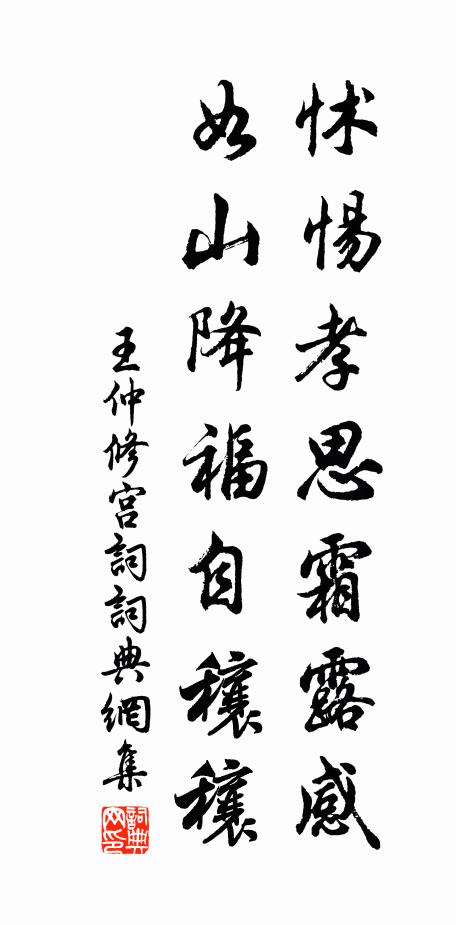 怵惕孝思霜露感
如山降福自穰穰
王仲修宫詞詞典網集
詞典网印